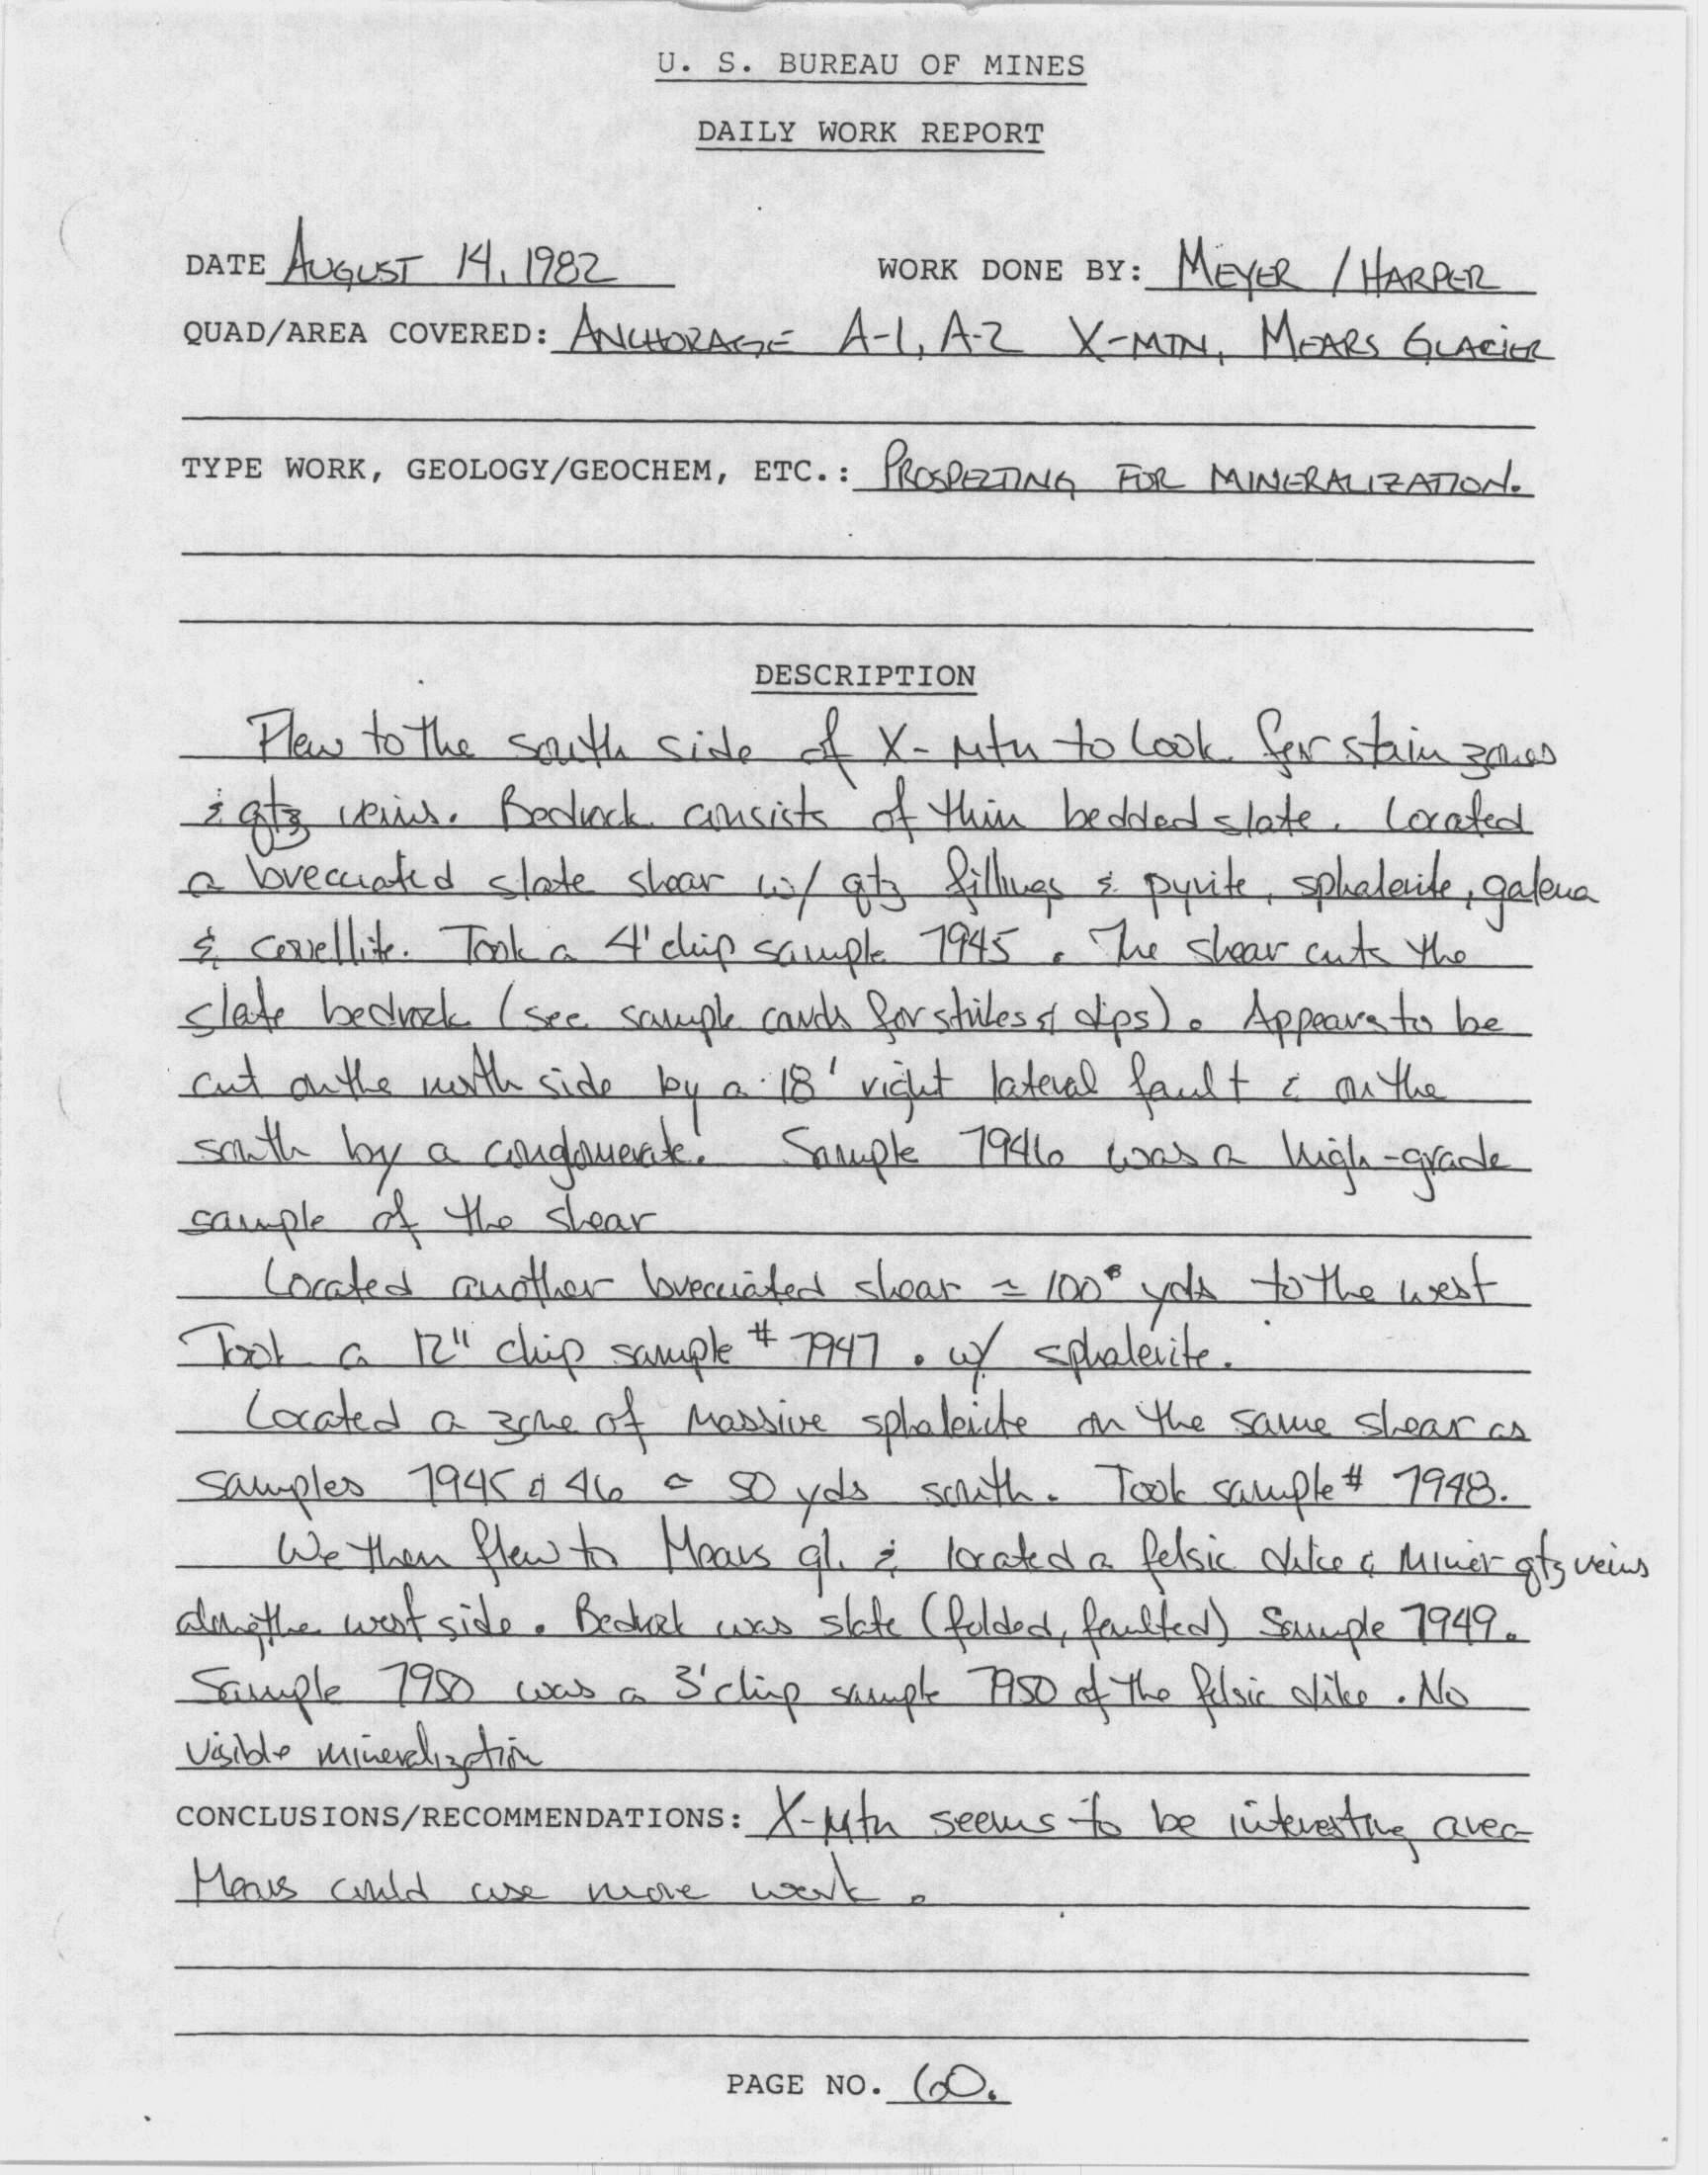 U. S. BUREAU OF MINES
DAILY WORK REPORT
DATE AUGUST 14, 1982 WORK DONE BY: MEYER / HARPER
QUAD/AREA COVERED: ANCHORAGE A-1, A-2 X-MTN, MEARS GLACIER
TYPE WORK, GEOLOGY/GEOCHEM, ETC.: PROSPECTING FOR MINERALIZATION.
DESCRIPTION
Flew to the south side of X-Mtn to look for stain zones
& qtz veins. Bedrock consists of thin bedded slate. Located
a brecciated slate shear w/ qtz fillings & pyrite, sphalerite, galena
& covellite. Took a 4' chip sample 7945. The shear cuts the
slate bedrock (see sample cards for strikes & dips). Appears to be
cut on the north side by a 18' right lateral fault & on the
south by a conglomerate. Sample 7946 was a high-grade
sample of the shear
Located another brecciated shear ≈ 100 yds to the west
Took a 12" chip sample # 7947. w/ sphalerite.
Located a zone of massive sphalerite on the same shear as
samples 7945 & 46 ≈ 50 yds south. Took sample # 7948.
We then flew to Mears gl. & located a felsic dike & minor qtz veins
along the west side. Bedrock was slate (folded, faulted) Sample 7949.
Sample 7950 was a 3' chip sample 7950 of the felsic dike. No
visible mineralization
CONCLUSIONS/RECOMMENDATIONS: X-Mtn seems to be interesting area
Mears could use more work.
PAGE NO. 60.